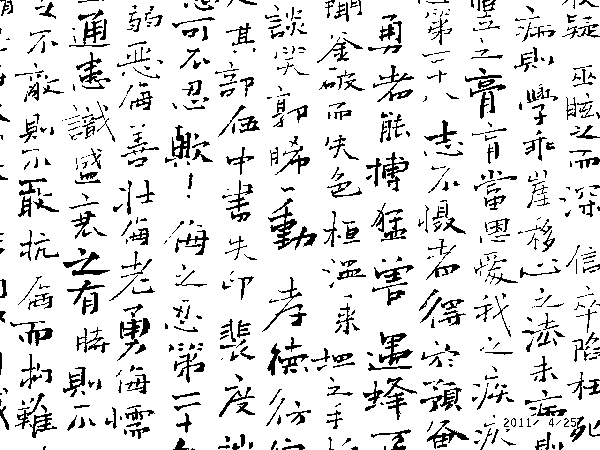 疑巫眩之而深信卒陷枉死
病則學乖崖移心之法未病則
之膏肓當思愛我之疾疢
第二十八志不懾者得於預備
勇者能搏猛獸遇蜂
釜破而失色桓溫來坦之手
談笑郭晞一動孝德彷
其部伍中書失印裴度
可不忍歟！侮之忍第二十
弱惡侮善壯侮老勇侮懦
通患識盛衰之有時則不
不敵則不敢抗侮而拘難
2011/ 4/25